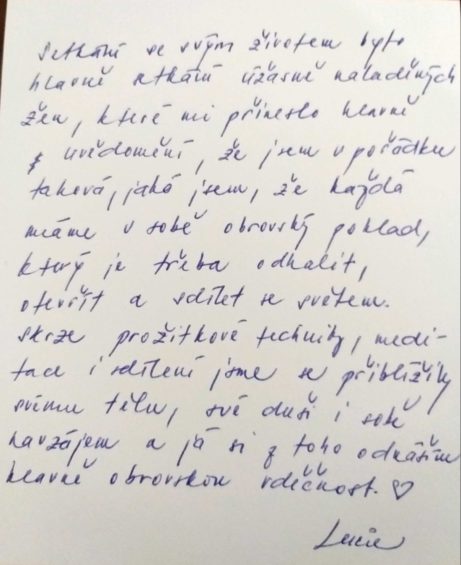 Setkání se svým životem bylo
hlavně setkání úžasně naladěných
žen, které mi přineslo hlavně
uvědomění, že jsem v pořádku
taková, jaká jsem, že každá
máme v sobě obrovský poklad,
který je třeba odhalit,
otevřít a sdílet se světem.
Skrze prožitkové techniky, medi-
tace i sdílení jsme se přiblížily
svému tělu, své duši i sobě
navzájem a já si z toho odnáším
hlavně obrovskou vděčnost. ♡
Lucie